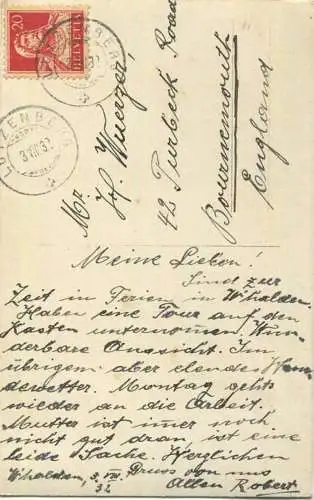 20
HELVETIA
LUTZENBERG
3.VIII.32
Mr
H. Wuerzer
42 Purbeck Road
Bournemouth
England
Meine Lieben!
Sind zur
Zeit in Ferien in W'halden.
Haben eine Tour auf den
Kasten unternommen. Wun-
derbare Aussicht. Im
übrigem aber elendes Hun-
dewetter. Montag gehts
wieder an die Arbeit.
Mutter ist imer noch
nicht gut dran ist eine
leide Sache. Herzlichen
Gruss von uns
W'halden, 3. VIII. Allen Robert
32